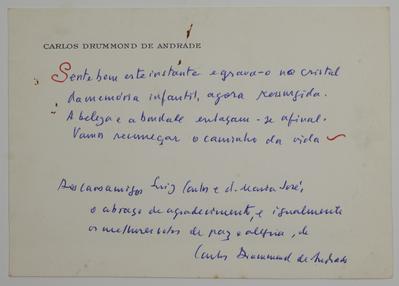 CARLOS DRUMMOND DE ANDRADE
Sente bem este instante e grava-o no cristal
da memória infantil, agora ressurgida.
A beleza e a bondade enlaçam-se afinal.
Vamos recomeçar o caminho da vida
Aos caros amigos Luiz Carlos e d. Maria José,
o abraço de agradecimento, e igualmente
os melhores votos de paz e alegria, de
Carlos Drummond de Andrade